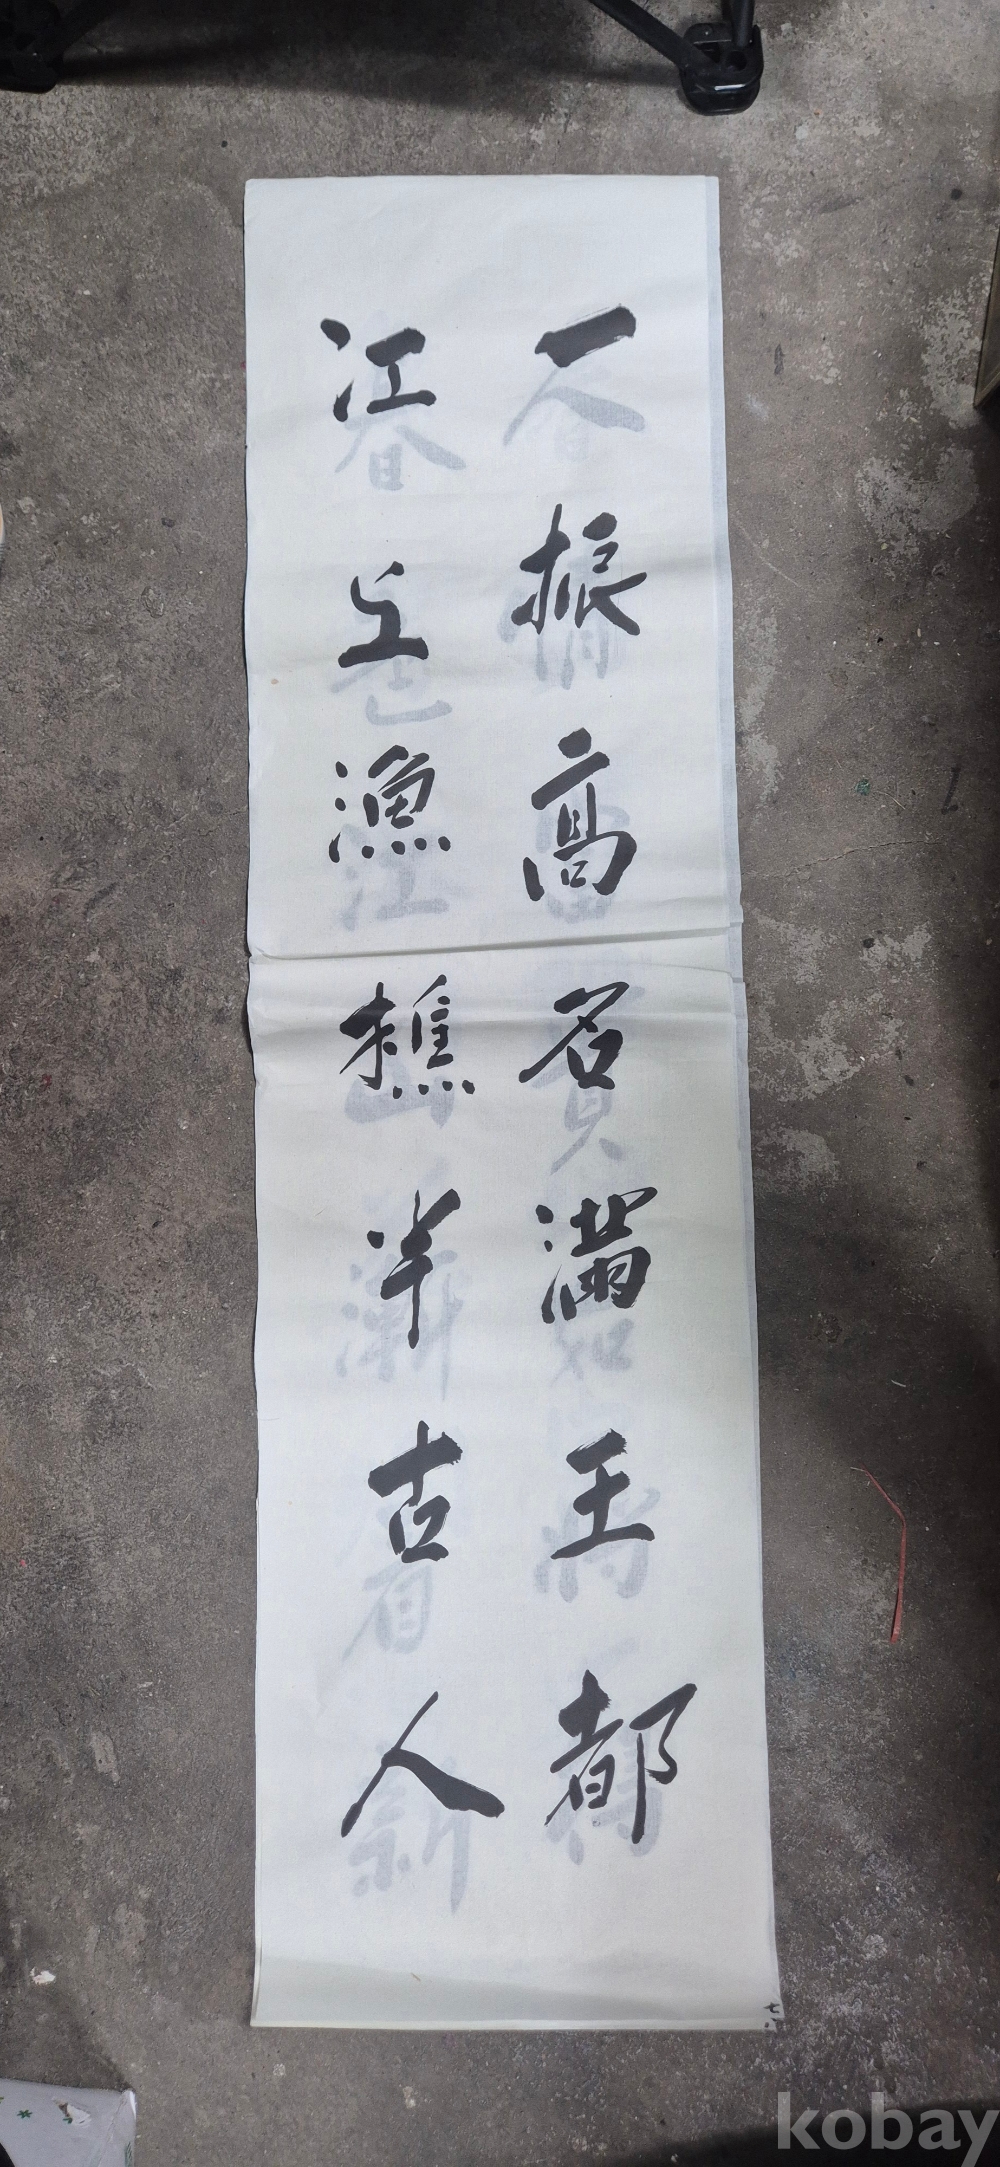 一振高名滿王都
江上漁樵半古人
kobay